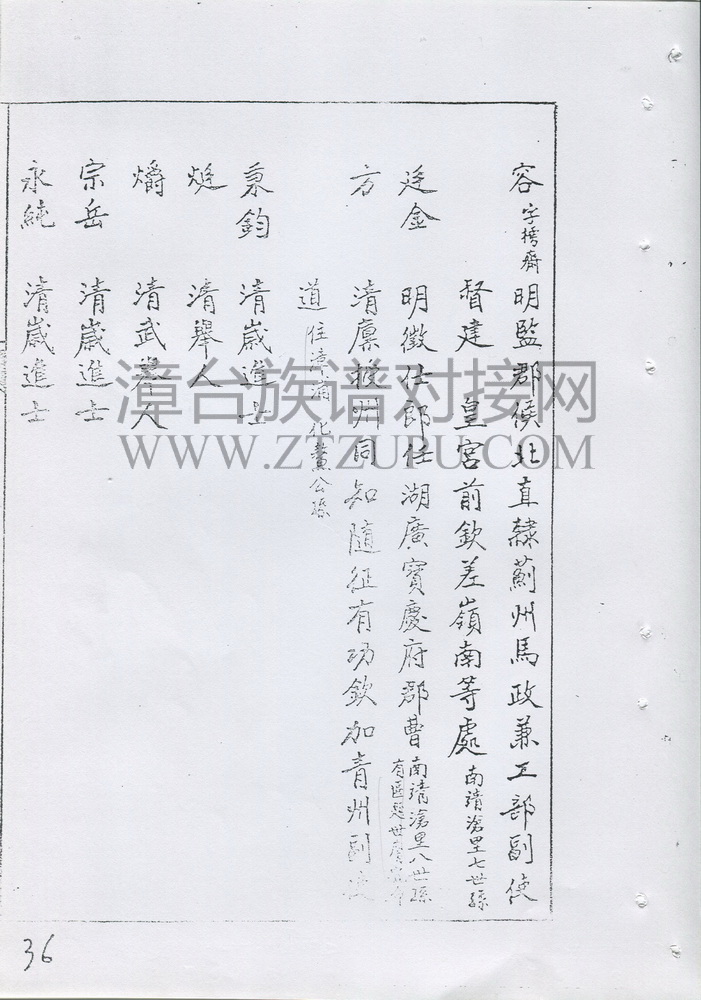 容 字 齋 明監郡候北直隸薊州馬政兼工部副使
督建 皇宮前欽差嶺南等處 南靖滄里七世孫
廷金 明徵仕郎任湖廣寶慶府郡曹 南靖滄里八世孫
有匾
方 清廩授州同知隨征有功欽加青州副使
道 住漳浦 化鰲公孫
秉鈞 清歲進士
烶 清舉人
爝 清武舉人
宗岳 清歲進士
永純 清歲進士
漳台族谱对接网
WWW.ZTZUPU.COM
36